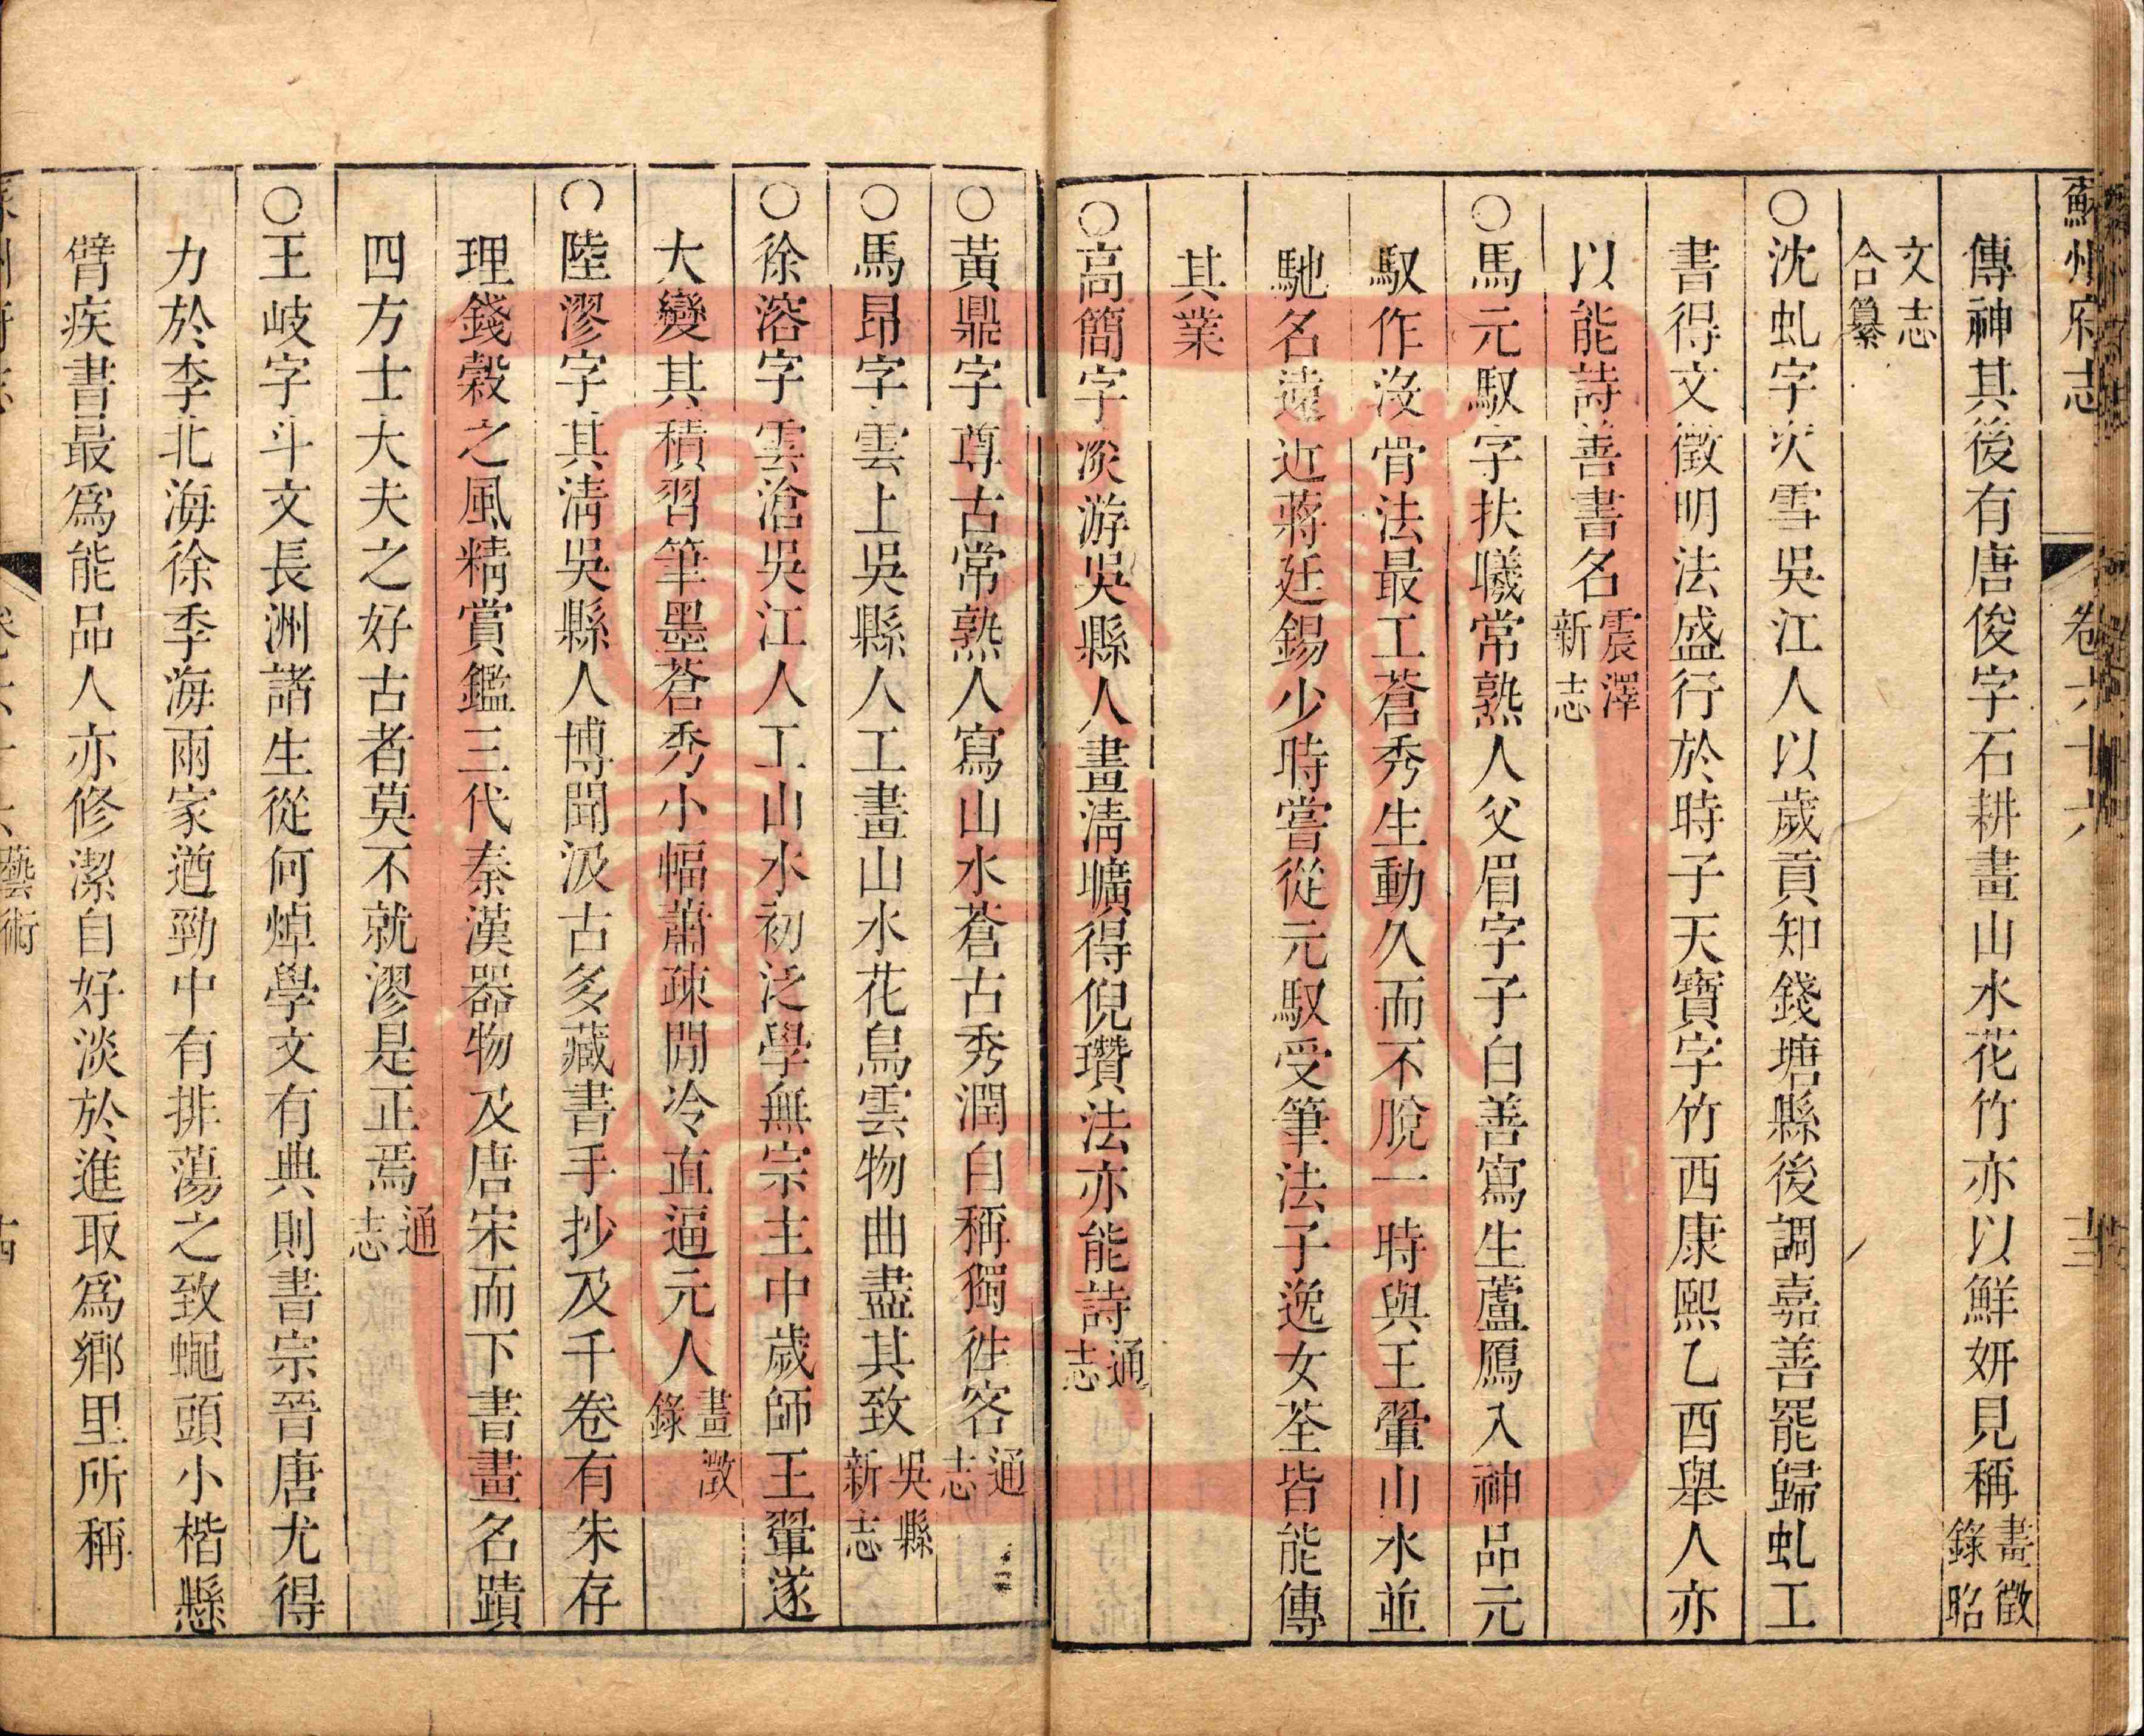 蘇州府志　卷六十六　十三
傳神其後有唐俊字石耕畫山水花竹亦以鮮妍見稱畫徵錄昭
文志合纂
○沈虬字次雪吳江人以歲貢知錢塘縣後調嘉善罷歸虬工
書得文徵明法盛行於時子天寶字竹西康熙乙酉舉人亦
以能詩善書名震澤新志
○馬元馭字扶曦常熟人父眉字子白善寫生蘆鴈入神品元
馭作沒骨法最工蒼秀生動久而不脫一時與王翬山水並
馳名遠近蔣廷錫少時嘗從元馭受筆法子逸女荃皆能傳
其業
○高簡字淡游吳縣人畫淸曠得倪瓚法亦能詩通志
○黃鼎字尊古常熟人寫山水蒼古秀潤自稱獨徃客通志
○馬昂字雲上吳縣人工畫山水花鳥雲物曲盡其致吳縣新志
○徐溶字雲滄吳江人工山水初泛學無宗主中歲師王翬遂
大變其積習筆墨蒼秀小幅蕭疎閒冷直逼元人畫徵錄
○陸漻字其淸吳縣人博聞汲古多藏書手抄及千卷有朱存
理錢穀之風精賞鑑三代秦漢器物及唐宋而下書畫名蹟
四方士大夫之好古者莫不就漻是正焉通志
○王岐字斗文長洲諸生從何焯學文有典則書宗晉唐尤得
力於李北海徐季海兩家遒勁中有排蕩之致蠅頭小楷懸
臂疾書最爲能品人亦修潔自好淡於進取爲鄉里所稱
藝術